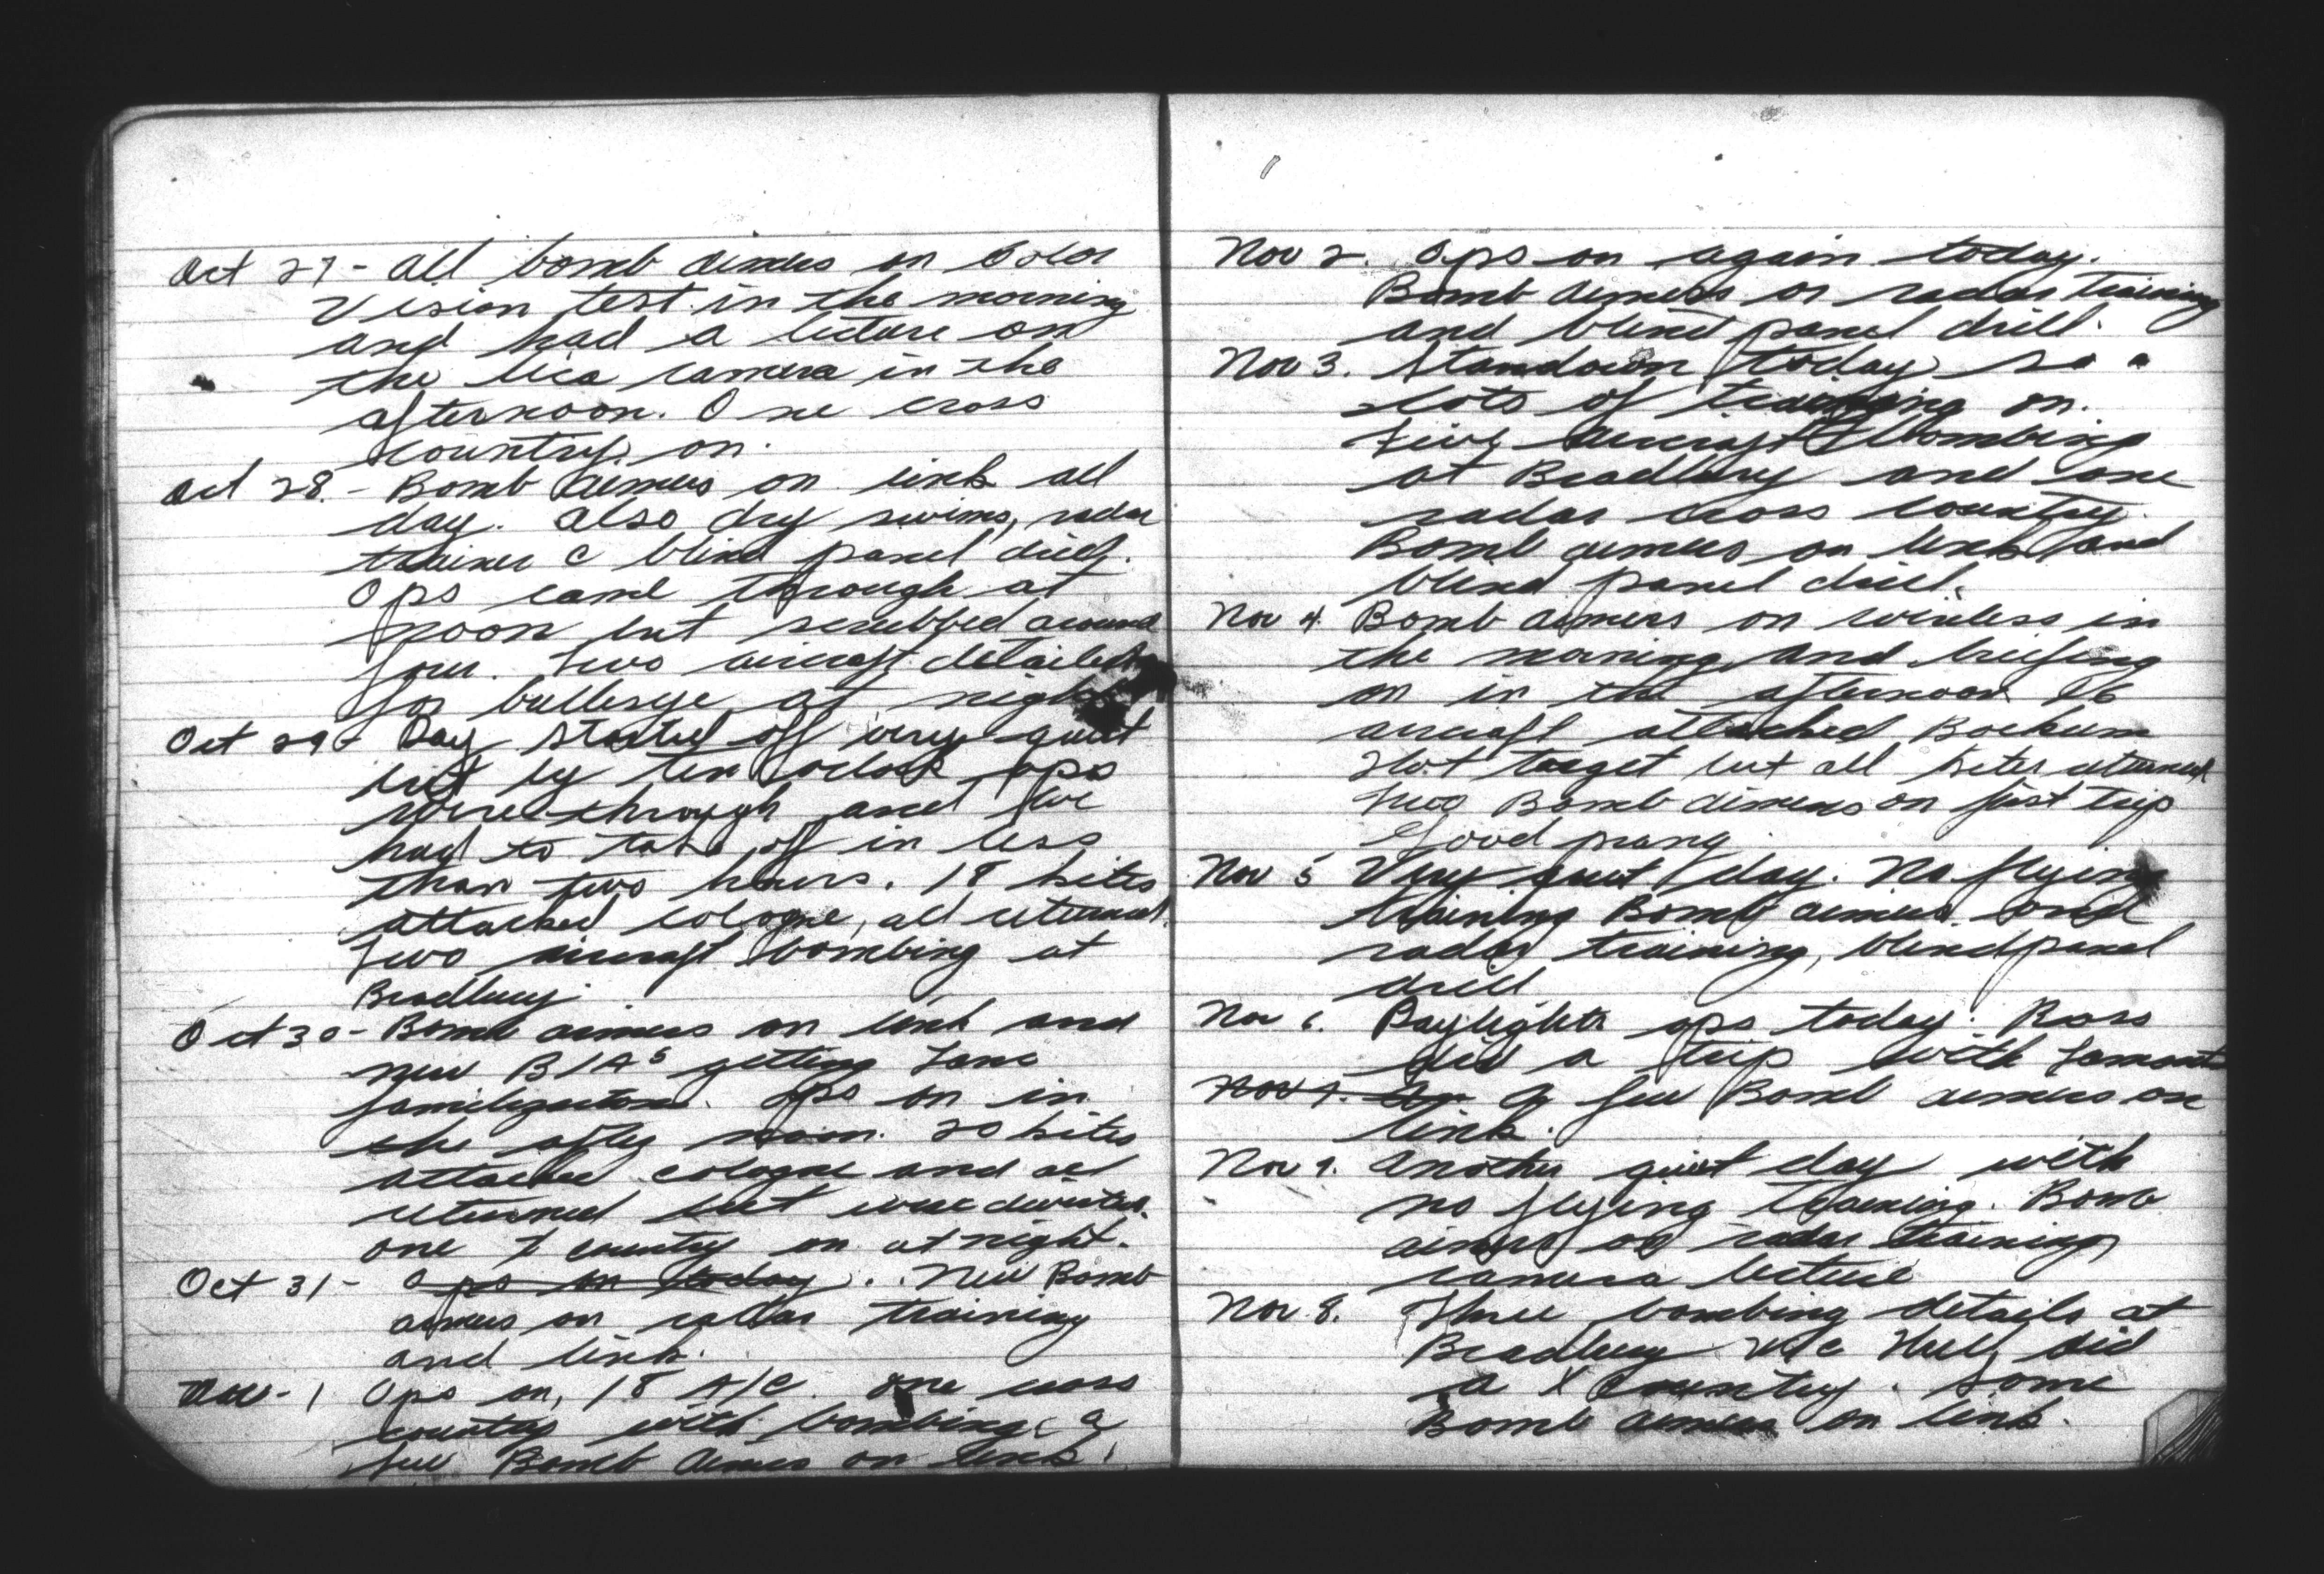 Oct 27 - All bomb aimers on Color
Vision test in the morning
and had a lecture on
the lica camera in the
afternoon. One cross
country on.
Oct 28. - Bomb aimers on link all
day. Also dry swims, radar
trainer & blind panel drill.
Ops came through at
noon but scrubbed around
four. Two aircraft detailed
for bullseye at night
Oct 29 - Day started off very quiet
but by ten oclock ops
were through and we
had to take off in less
than two hours. 18 kites
attacked cologne, all returned.
Two aircraft bombing at
Bradbury
Oct 30 - Bomb aimers on link and
new B/As getting Lanc
Ops on in
the after noon. 20 kites
attacked cologne and all
returned but were diverted.
one X country on at night.
Oct 31 - Ops on today. New Bomb
aimers on radar training
and link.
Nov - 1 Ops on, 18 A/C. One cross
country with bombing. A
few Bomb Aimers on link.
Nov 2. Ops on again today.
Bomb Aimers on radar training
and blind panel drill.
Nov 3. Standown today so
lots of training on.
Five aircraft bombing
at Bradbury and one
radar cross country.
Bomb aimers on link and
blind panel drill.
Nov 4. Bomb aimers on wireless in
the morning and briefing
on in the afternoon 16
aircraft attacked Bochum
Hot target but all kites returned
Two Bomb aimers on first trip
Good prang.
Nov 5 Very quiet day. No flying
training Bomb aimers on
radar training, blind panel
drill
Nov 6. Daylight ops today. Ross
did a trip with Lamont
Nov 7. A few Bomb aimers on
link.
Nov 7. Another quiet day with
no flying training. Bomb
aimers on radar training
camera lecture
Nov 8. Three bombing details at
Bradbury W/C Hull did
a X Country. Some
Bomb aimers on link.